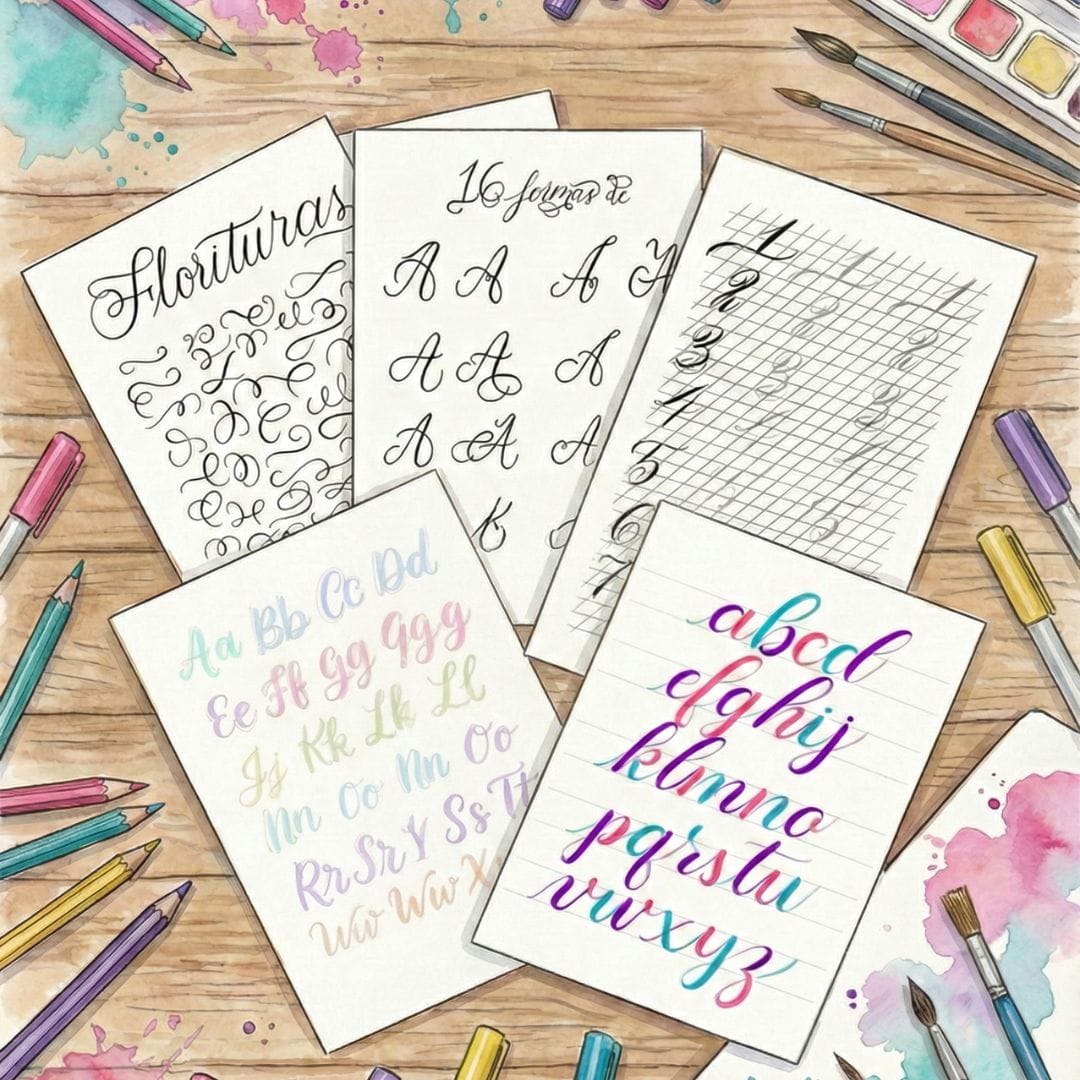 Florituras
16 formas de
A A A A
A A A
A A A
1
2
3
4
5
6
7
Aa Bb Cc Dd
Ee Ff Gg Ggg
Jj Kk Lk Ll
Nn Oo Nn Oo
Rr Sr Y Ss Tt
Ww Ww X
abcd
efghij
klmno
pqrstu
vwxyz